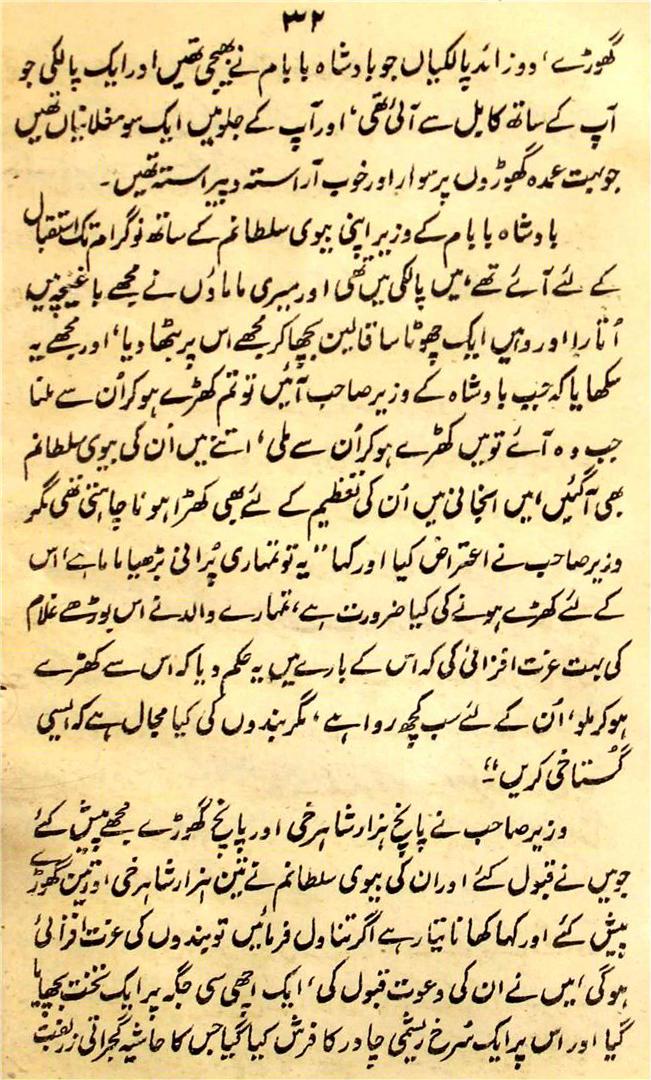 ۳۲
گھوڑے، دو زائد پالکیاں جو بادشاہ بابام نے بھیجی تھیں اور ایک پالکی جو
آپ کے ساتھ کابل سے آئی تھی، اور آپ کے جلو میں ایک سو مغلانیاں تھیں
جو بہت عمدہ گھوڑوں پر سوار اور خوب آراستہ و پیراستہ تھیں۔
بادشاہ بابام کے وزیر اپنی بیوی سلطانم کے ساتھ نوگرام تک استقبال
کے لئے آئے تھے، میں پالکی میں تھی اور میری ماماؤں نے مجھے باغیچہ میں
اُتارا اور وہیں ایک چھوٹا سا قالین بچھا کر مجھے اس پر بٹھا دیا، اور مجھے یہ
سکھایا کہ جب بادشاہ کے وزیر صاحب آئیں تو تم کھڑے ہو کر اُن سے ملنا
جب وہ آئے تو میں کھڑے ہو کر اُن سے ملی، اتنے میں اُن کی بیوی سلطانم
بھی آگئیں، میں انجانی میں اُن کی تعظیم کے لئے بھی کھڑا ہونا چاہتی تھی مگر
وزیر صاحب نے اعتراض کیا اور کہا "یہ تو تمہاری پُرانی بڑھیا ماما ہے، اس
کے لئے کھڑے ہونے کی کیا ضرورت ہے، تمہارے والد نے اس بوڑھے غلام
کی بہت عزت افزائی کی کہ اس کے بارے میں یہ حکم دیا کہ اس سے کھڑے
ہو کر ملو، اُن کے لئے سب کچھ روا ہے، مگر بندوں کی کیا مجال ہے کہ ایسی
گستاخی کریں"
وزیر صاحب نے پانچ ہزار شاہرخی اور پانچ گھوڑے مجھے پیش کئے
جو میں نے قبول کئے اور ان کی بیوی سلطانم نے تین ہزار شاہرخی اور تین گھوڑے
پیش کئے اور کہا کھانا تیار ہے اگر تناول فرمائیں تو بندوں کی عزت افزائی
ہوگی، میں نے ان کی دعوت قبول کی، ایک اچھی سی جگہ پر ایک تخت بچھایا
گیا اور اس پر ایک سُرخ ریشمی چادر کا فرش کیا گیا جس کا حاشیہ گجراتی زربفت